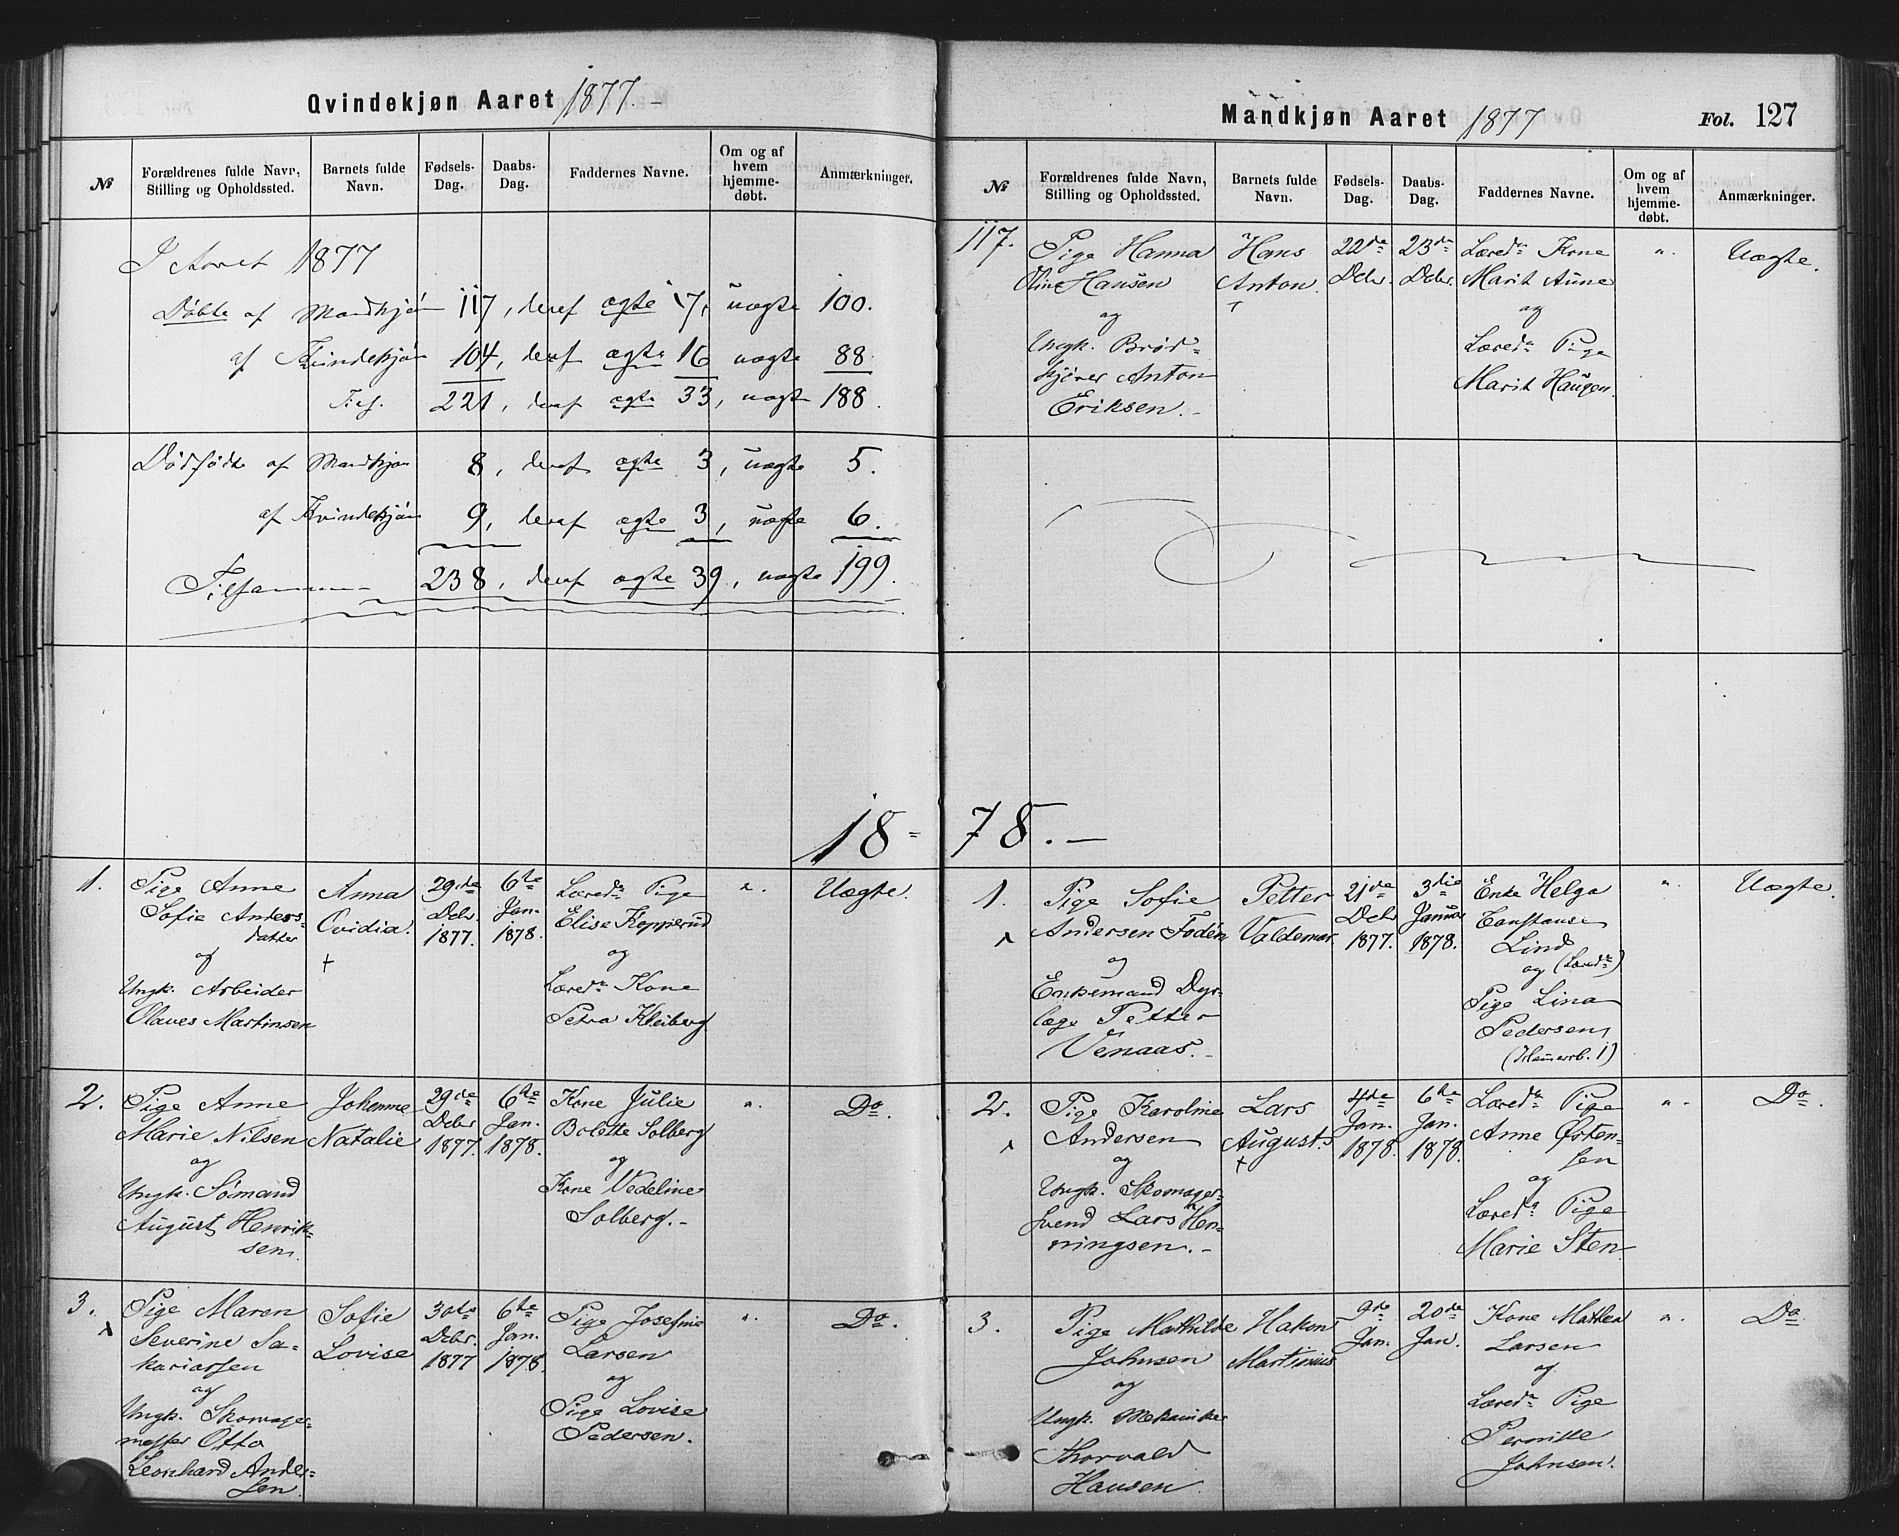 Qvindekjøn Aaret 1877.
№
Forældrenes fulde Navn,
Stilling og Opholdssted.
Barnets fulde
Navn.
Fødsels-
Dag.
Daabs-
Dag.
Faddernes Navne.
Om og af
hvem
hjemme-
døbt.
Anmærkninger.
I Aaret 1877
Døbte af Mandkjøn 117, deraf ægte 17, uægte 100.
af Kvindekjøn 104, deraf ægte 16 uægte 88
221, deraf ægte 33, uægte 188.
Dødfødte af Mandkjøn 8, deraf ægte 3, uægte 5.
af Kvindekjøn 9, deraf ægte 3, uægte 6.
Tilsammen 238, deraf ægte 39, uægte 199.
18-
1.
Pige Anne
Sofie Anders-
datter
og
Ungk. Arbeider
Olaves Martinsen
Anna
Ovidia.
+
29de
Decbr.
1877.
6te
Jan.
1878.
Læreda Pige
Elise Kopperud
og
Læreda Kone
Petra Kleiberg
".
Uægte.
2.
Pige Anne
Marie Nilsen
og
Ungk. Sömand
August Henrik-
sen.
Johanne
Natalie
29de
Decbr
1877.
6te
Jan.
1878.
Kone Julie
Bolette Solberg
og
Kone Vedeline
Solberg.-
".
Do.
3.
Pige Maren
Severine Sa-
kariassen
og
Ungk. Skomager-
mester Otto
Leonhard Ander-
sen.
Sofie
Lovise
30te
Decbr.
1877
6te
Jan.
1878.
Pige Josefine
Larsen
og
Pige Lovise
Pedersen.
".
Do.
Mandkjøn Aaret 1877
Fol. 127
№
Forældrenes fulde Navn,
Stilling og Opholdssted.
Barnets fulde
Navn.
Fødsels-
Dag.
Daabs-
Dag.
Faddernes Navne.
Om og af
hvem
hjemme-
døbt.
Anmærkninger.
117.
Pige Hanna
Oline Hansen
og
Ungk. Brød-
kjører Anton
Eriksen.-
Hans
Anton.
+
22de
Decbr.
23de
Decbr.
Læreda Kone
Marit Aune
og
Læreda Pige
Marit Haugen.
".
Uægte.
78.-
1.
Pige Sofie
Andersen Foden
og
Enkemand Dyr-
læge Petter
Venaas.-
Petter
Valdemar.
21de
Decbr
1877.
3die
Januar
1878.
Enke Helga
Constance
Lind
og (Læreda)
Pige Lina
Pedersen,
".
Uægte.
2.
Pige Karoline
Andersen
og
Ungk. Skomager-
svend Lars Hen-
ningsen.-
Lars
August.
+
4de
Jan.
1878.
6te
Jan.
1878.
Læreda Pige
Anne Østen-
sen
og
Læreda Pige
Marie Sten
".
Do.
3.
Pige Mathilde
Johnsen
og
Ungk. Mekaniker
Thorvald
Hansen.
Hakon
Martinius
9de
Jan.
20de
Jan.
Kone Mathea
Larsen
og
Læreda Pige
Pernille
Johnsen.
".
Do.